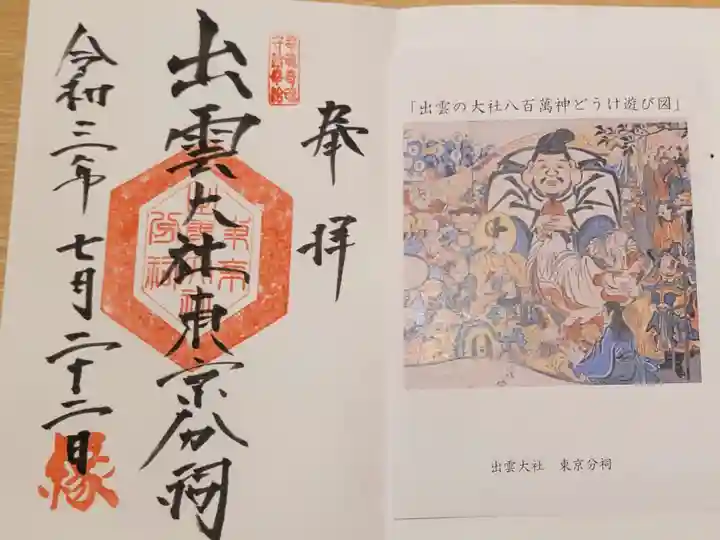 奉拝
出雲大社東京分祠
令和三年七月二十二日
縁
「出雲の大社八百萬神どうけ遊び図」
出雲大社　東京分祠